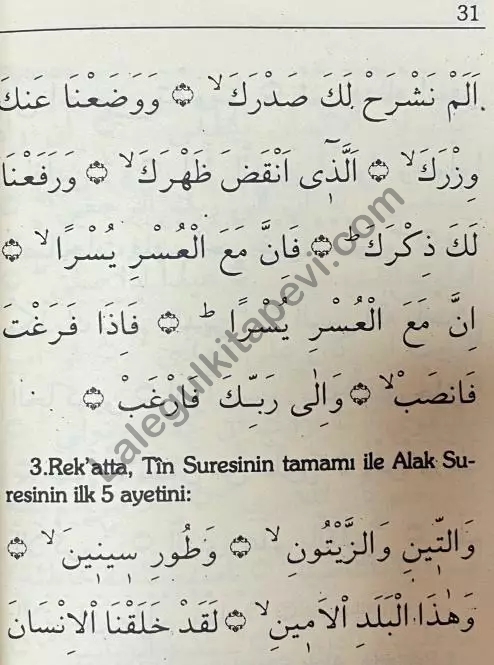 31
اَلَمْ نَشْرَحْ لَكَ صَدْرَكَ ۙ ۝ وَوَضَعْنَا عَنْكَ
وِزْرَكَ ۙ ۝ اَلَّذ۪ٓى اَنْقَضَ ظَهْرَكَ ۙ ۝ وَرَفَعْنَا
لَكَ ذِكْرَكَ ۜ ۝ فَاِنَّ مَعَ الْعُسْرِ يُسْرًا ۙ ۝
اِنَّ مَعَ الْعُسْرِ يُسْرًا ۜ ۝ فَاِذَا فَرَغْتَ
فَانْصَبْ ۙ ۝ وَاِلٰى رَبِّكَ فَارْغَبْ ۝
3.Rek'atta, Tîn Suresinin tamamı ile Alak Su-
resinin ilk 5 ayetini:
وَالتّ۪ينِ وَالزَّيْتُونِ ۙ ۝ وَطُورِ س۪ين۪ينَ ۙ ۝
وَهٰذَا الْبَلَدِ الْاَم۪ينِ ۙ ۝ لَقَدْ خَلَقْنَا الْاِنْسَانَ
Lalegulkitapevi.com